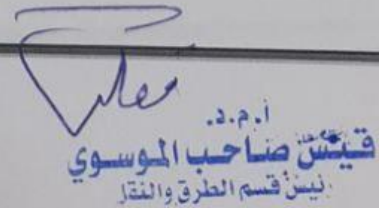 أ.م.د.
قيس صاحب الموسوي
رئيس قسم الطرق والنقل